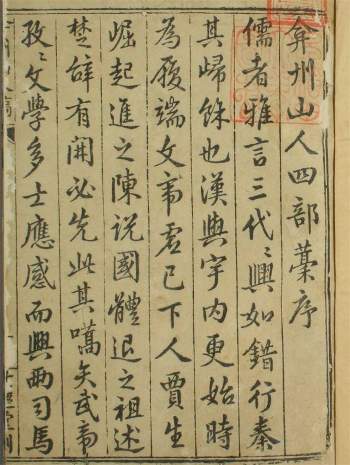 弇州山人四部藁序
儒者雅言三代〻興如錯行秦
其歸餘也漢興宇内更始時
為履端文帝虛己下人賈生
崛起進之陳說國體退之祖述
楚辭有開必先此其嚆矢武帝
孜〻文學多士應感而興兩司馬